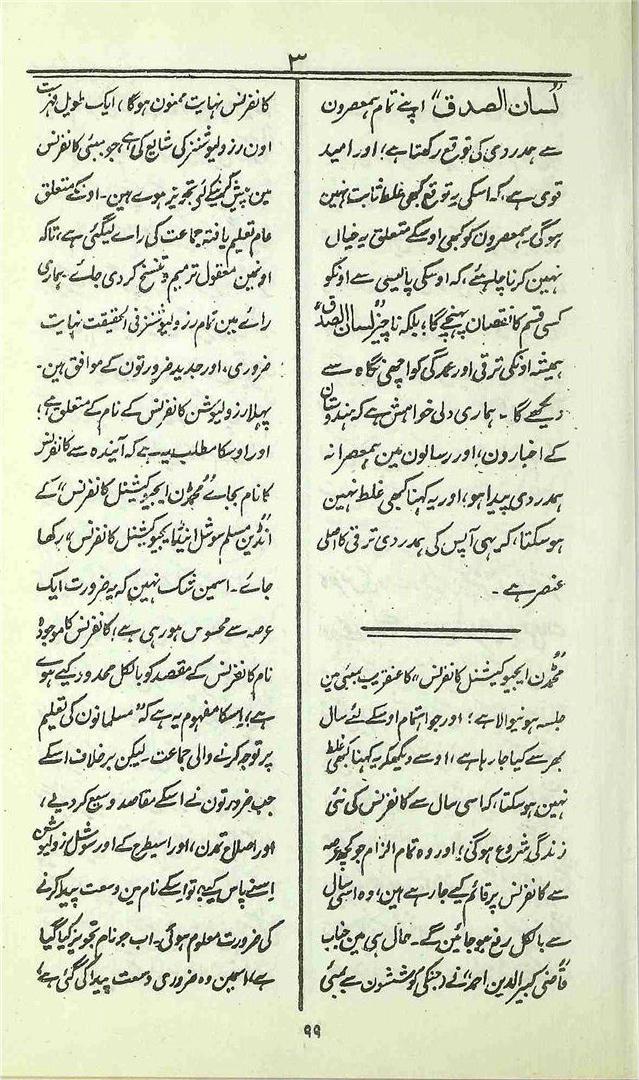 ۳
"لسان الصدق" اپنے تمام ہمعصرون
سے ہمدردی کی توقع رکھتا ہے؛ اور امید
قوی ہے، کہ اسکی یہ توقع کبھی غلط ثابت نہین
ہوگی۔ ہمعصرون کو کبھی اوسکے متعلق یہ خیال
نہین کرنا چاہئے، کہ اوسکی پالیسی سے اونکو
کسی قسم کا نقصان پہنچے گا؛ بلکہ ناچیز "لسان الصدق"
ہمیشہ اونکی ترقی اور عمدگی کو اچھی نگاہ سے
دیکھے گا۔ ہماری دلی خواہش ہے کہ ہندوستان
کے اخبارون، اور رسالون مین ہمعصرانہ
ہمدردی پیدا ہو، اور یہ کہنا کبھی غلط نہین
ہوسکتا، کہ یہی آپس کی ہمدردی ترقی کا اصلی
عنصر ہے۔
"محمڈن ایجوکیشنل کانفرنس" کا عنقریب بمبئی مین
جلسہ ہونیوالا ہے؛ اور جو اہتمام اوسکے لئے سال
بھر سے کیا جا رہا ہے، اوسے دیکھکر یہ کہنا کبھی غلط
نہین ہوسکتا، کہ اسی سال سے کانفرنس کی نئی
زندگی شروع ہوگی؛ اور وہ تمام الزام جو کچھ عرصہ
سے کانفرنس پر قائم کیے جا رہے ہین، وہ اسی سال
سے بالکل رفع ہو جائین گے۔ حال ہی مین جناب
قاضی کبیر الدین احمد" نے (جنکی کوششون سے بمبئی
کانفرنس نہایت ممنون ہوگا) ایک طویل فہرست
اون رزولیوشنز کی شایع کی ہے، جو بمبئی کانفرنس
مین پیش کرنیکے لئے تجویز ہوے ہین۔ اونکے متعلق
عام تعلیم یافتہ جماعت کی راے لیگئی ہے، تاکہ
اونمین معقول ترمیم و تنسیخ کردی جائے۔ ہماری
رائے مین تمام رزولیوشنز فی الحقیقت نہایت
ضروری، اور جدید ضرورتون کے موافق ہین۔
پہلا رزولیوشن کانفرنس کے نام کے متعلق ہے؛
اور اوسکا مطلب یہ ہے کہ آیندہ سے کانفرنس
کا نام بجاے "محمڈن ایجوکیشنل کانفرنس" کے
"انڈین مسلم سوشل اینڈ ایجوکیشنل کانفرنس" رکھا
جائے۔ اسمین شک نہین کہ یہ ضرورت ایک
عرصہ سے محسوس ہو رہی ہے؛ کانفرنس کا موجودہ
نام کانفرنس کے مقصد کو بالکل محدود کیے ہوے
ہے، اسکا مفہوم یہ ہے کہ "مسلمانون کی تعلیم
پر توجہ کرنے والی جماعت۔ لیکن برخلاف اسکے
جب ضرورتون نے اسکے مقاصد وسیع کردیے،
اور اصلاح تمدن، اور اسیطرح کے اور سوشل رزولیوشن
اسنے پاس کیے، تو اسکے نام مین وسعت پیدا کرنے
کی ضرورت معلوم ہوئی۔ اب جو نام تجویز کیا گیا
ہے، اسمین وہ ضروری وسعت پیدا کی گئی ہے؛
۹۹